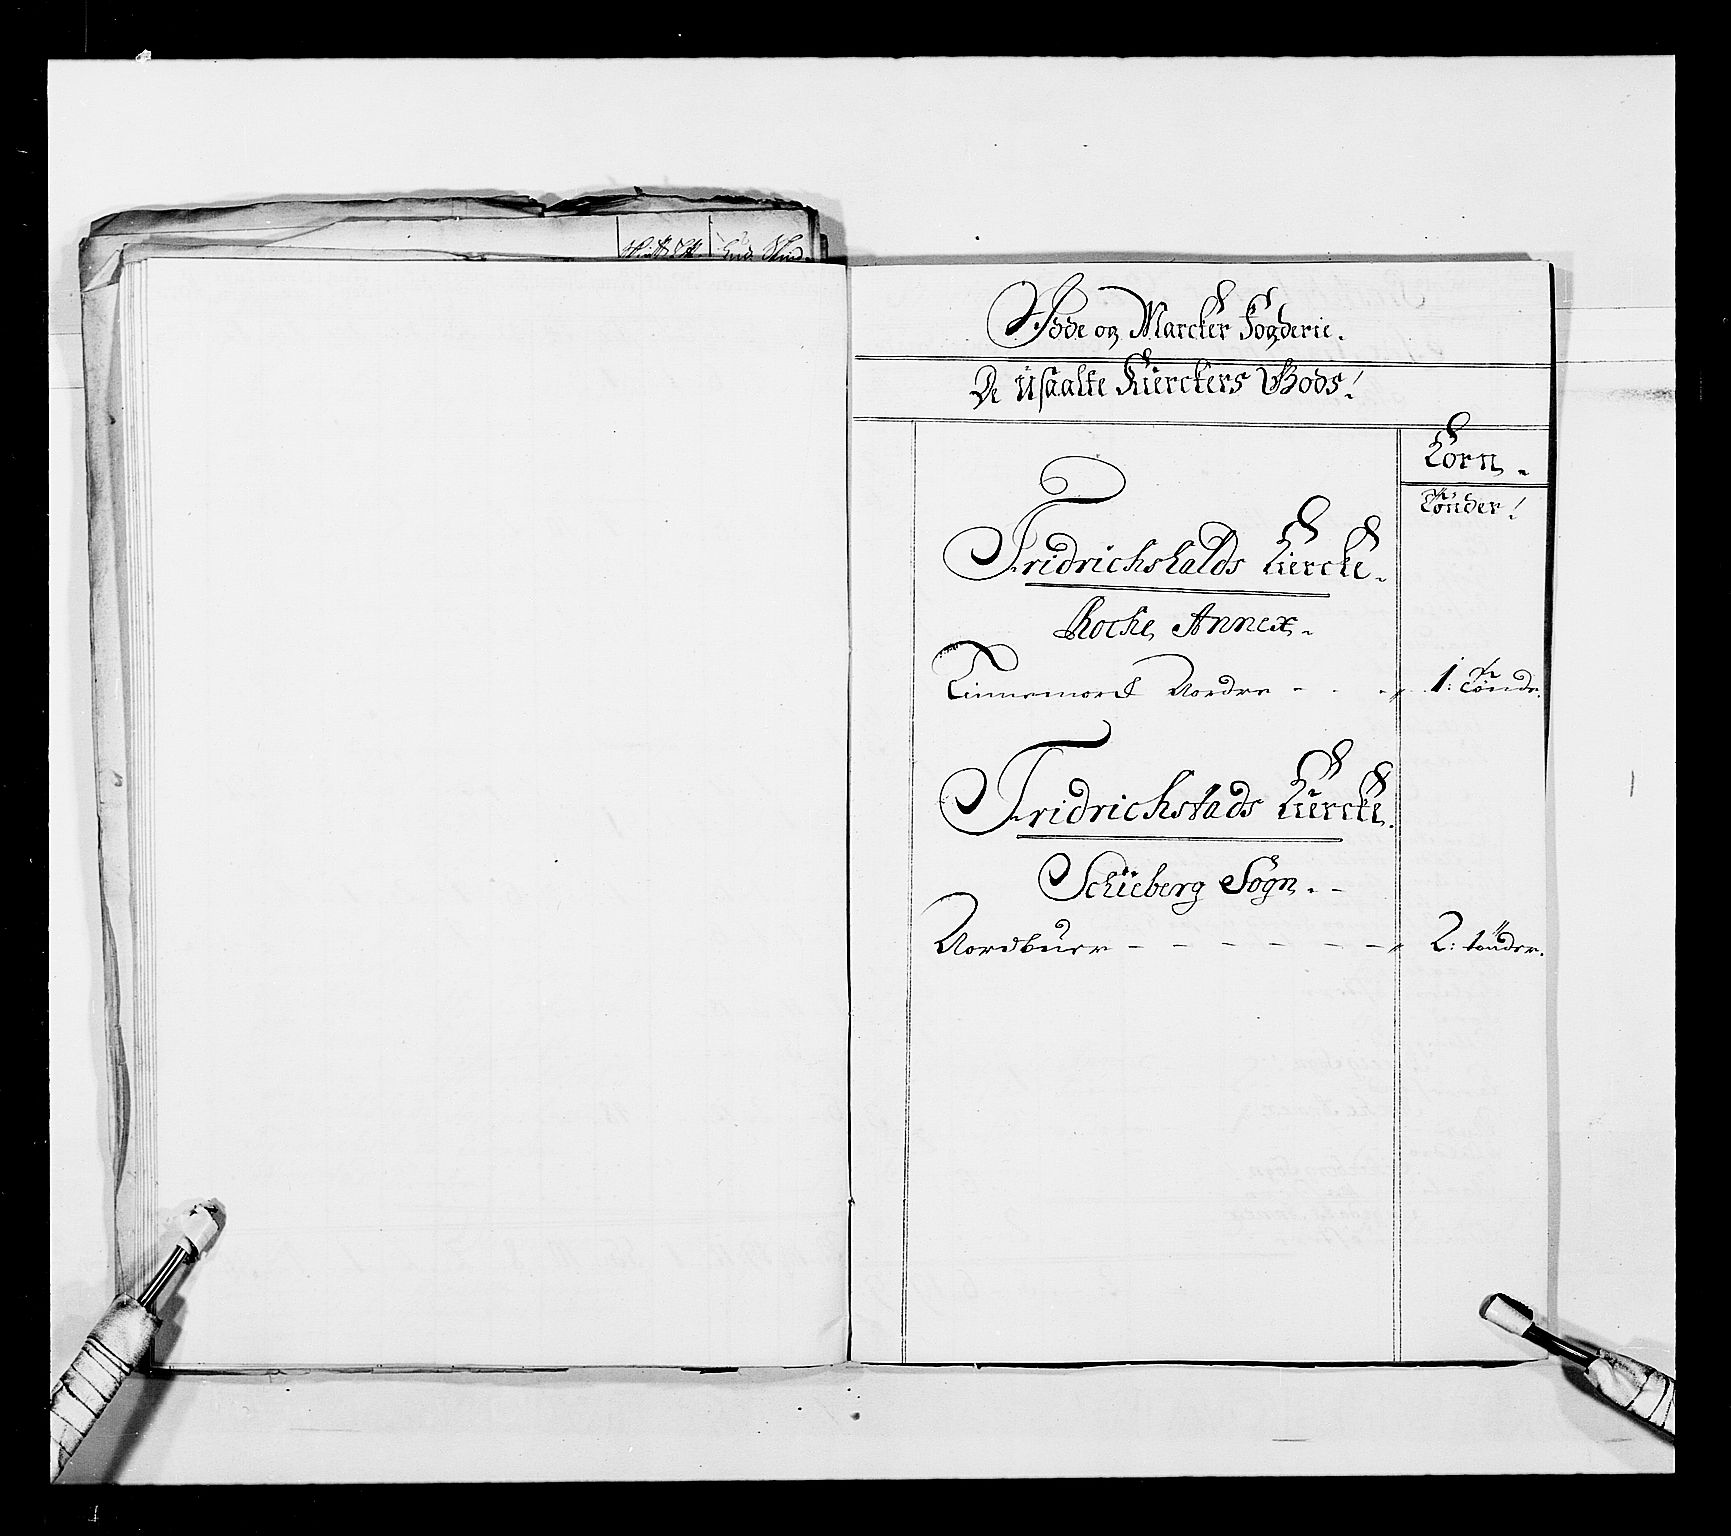 Jdde og Marcker Fogderie.
De Usaalte Kierckers Gods!
Korn.
Tönder!
Fridrichshalds Kiercke.
Rocke Annex.
Linnemorck Nordre - - - 1: tönde.
Fridrichstads Kiercke.
Schieberg Sogn. -
Nordbuer - - - - - - - 2: tönder.